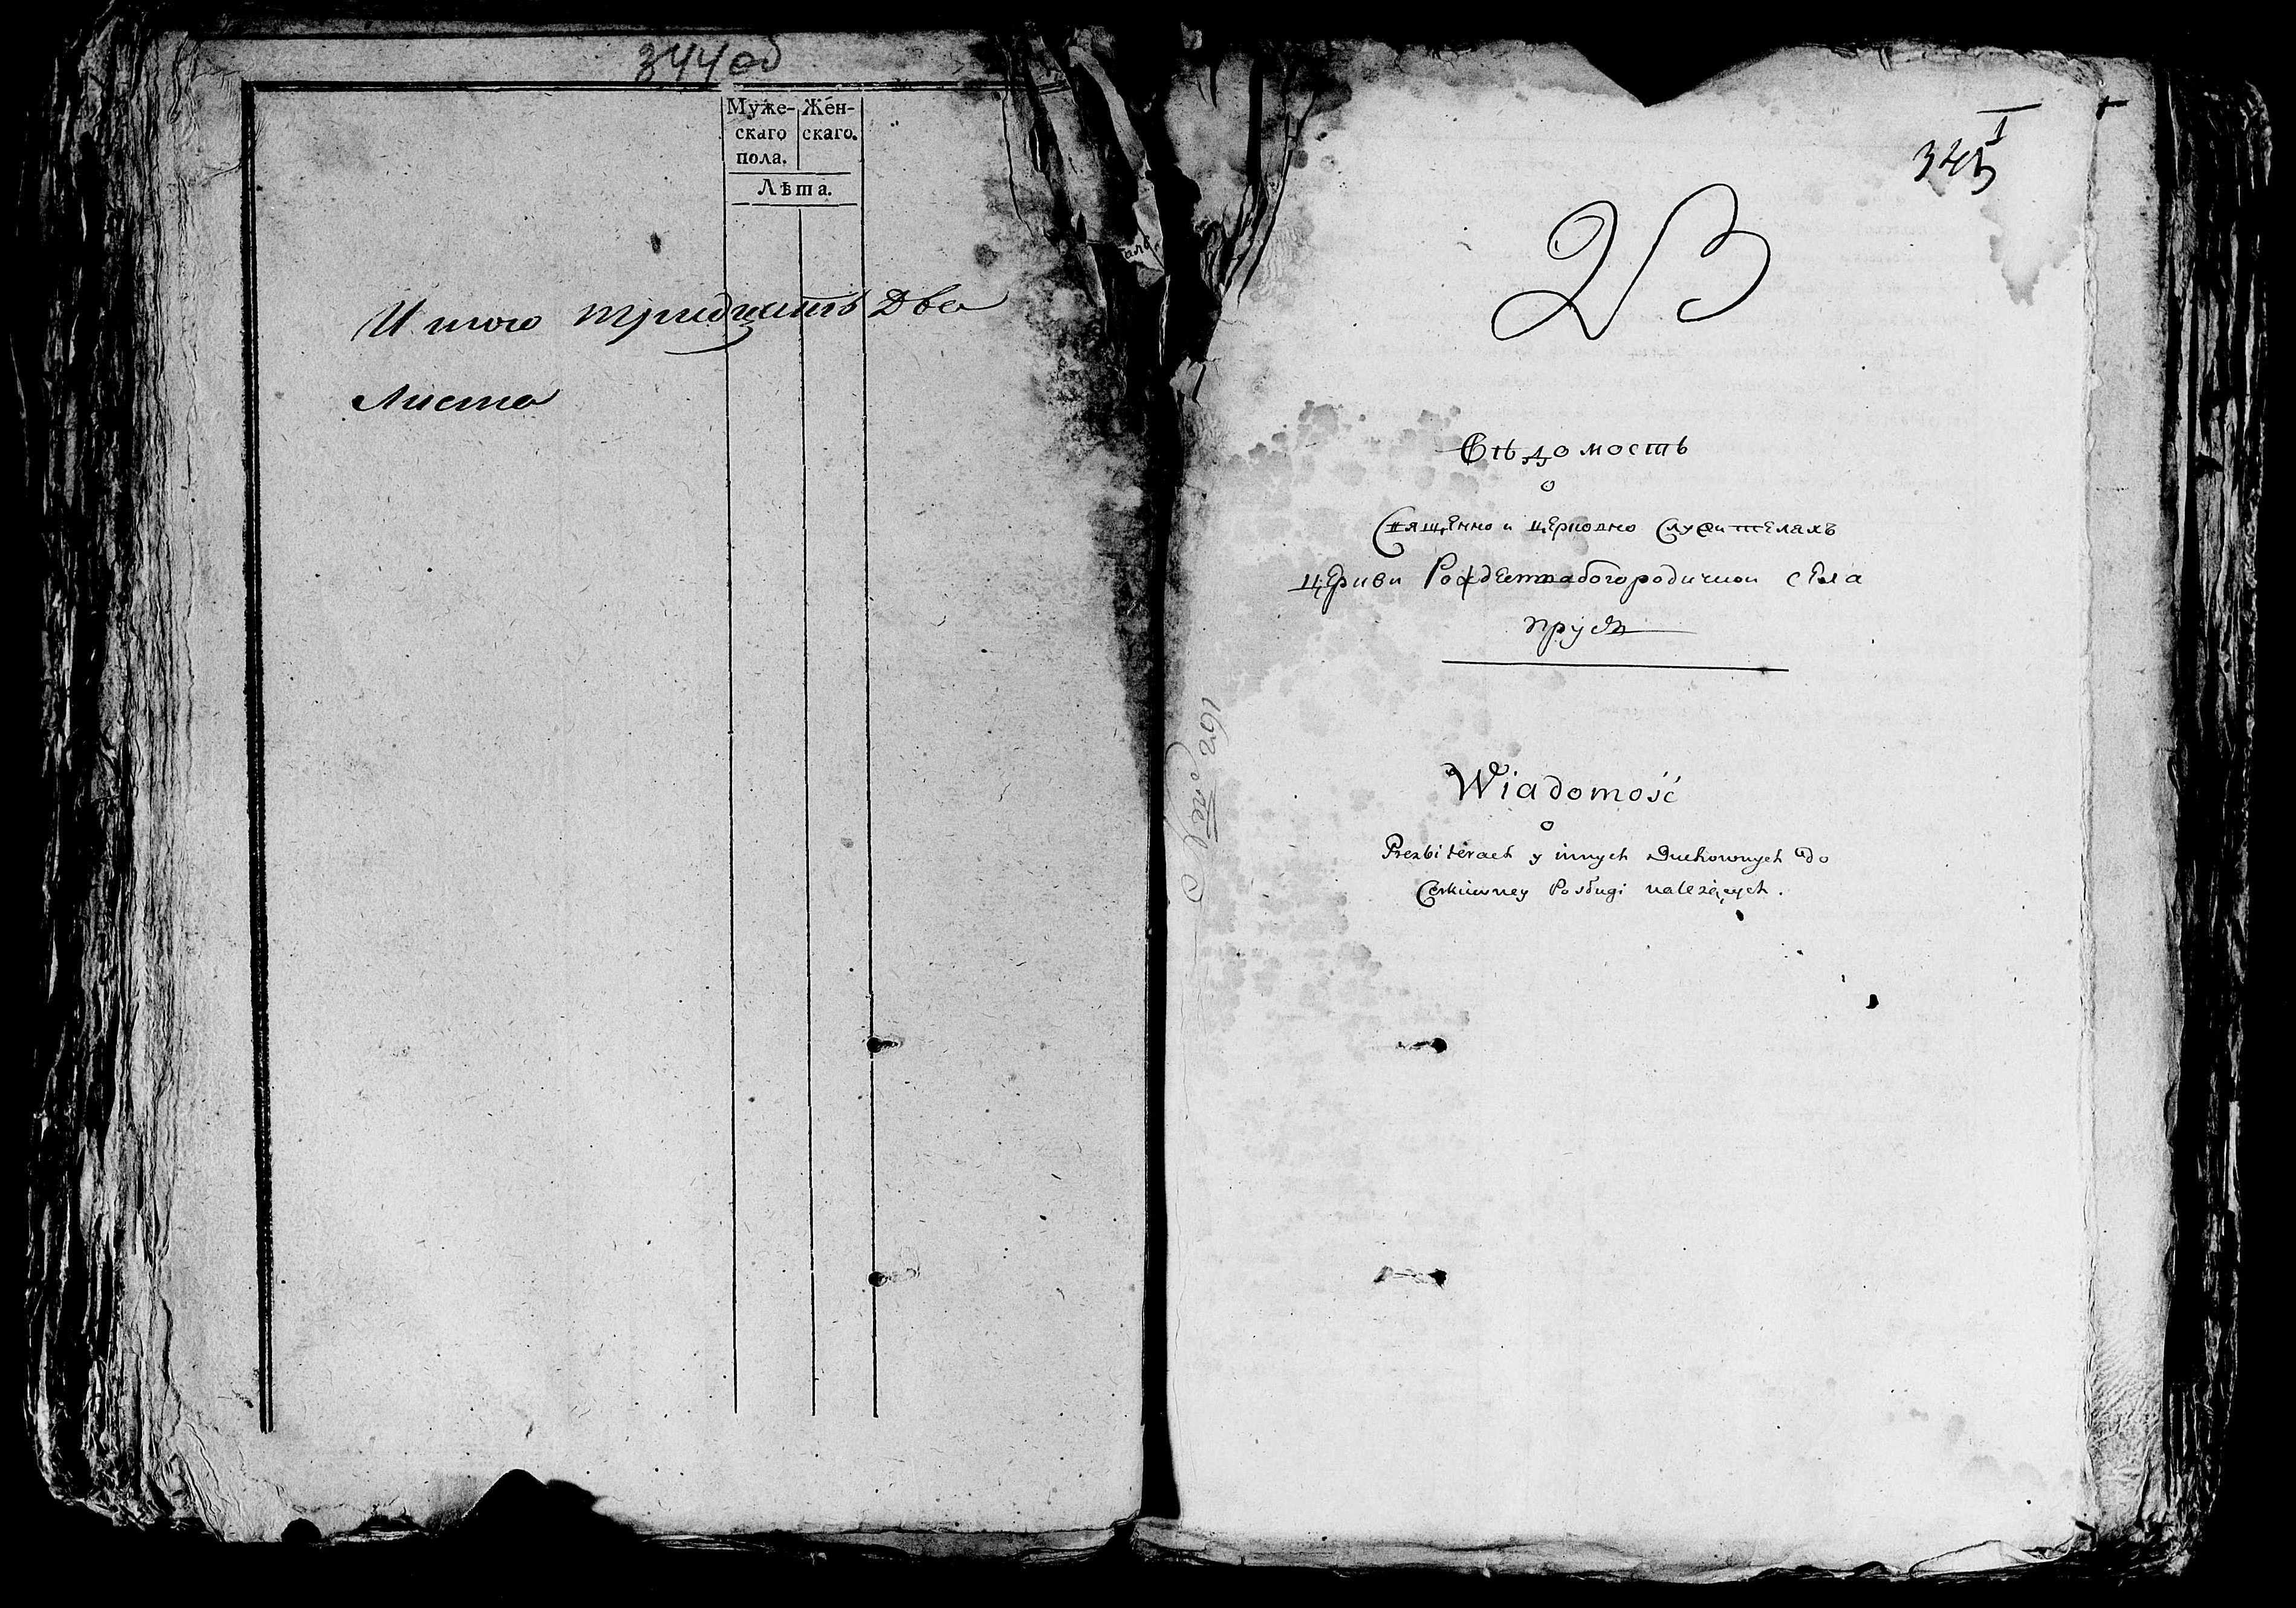 344 об
Муже- Жен-
скаго скаго.
пола.
Лѣта.
Итого тридцать два
листа
345
1
23
Вѣдомость
о
Священно и церковно служителахъ
церкви Рождествабогородичнои села
прусъ
Wiadomość
o
Prezbiterach y innych Duchownych do
Cerkiewney Posługi należących.